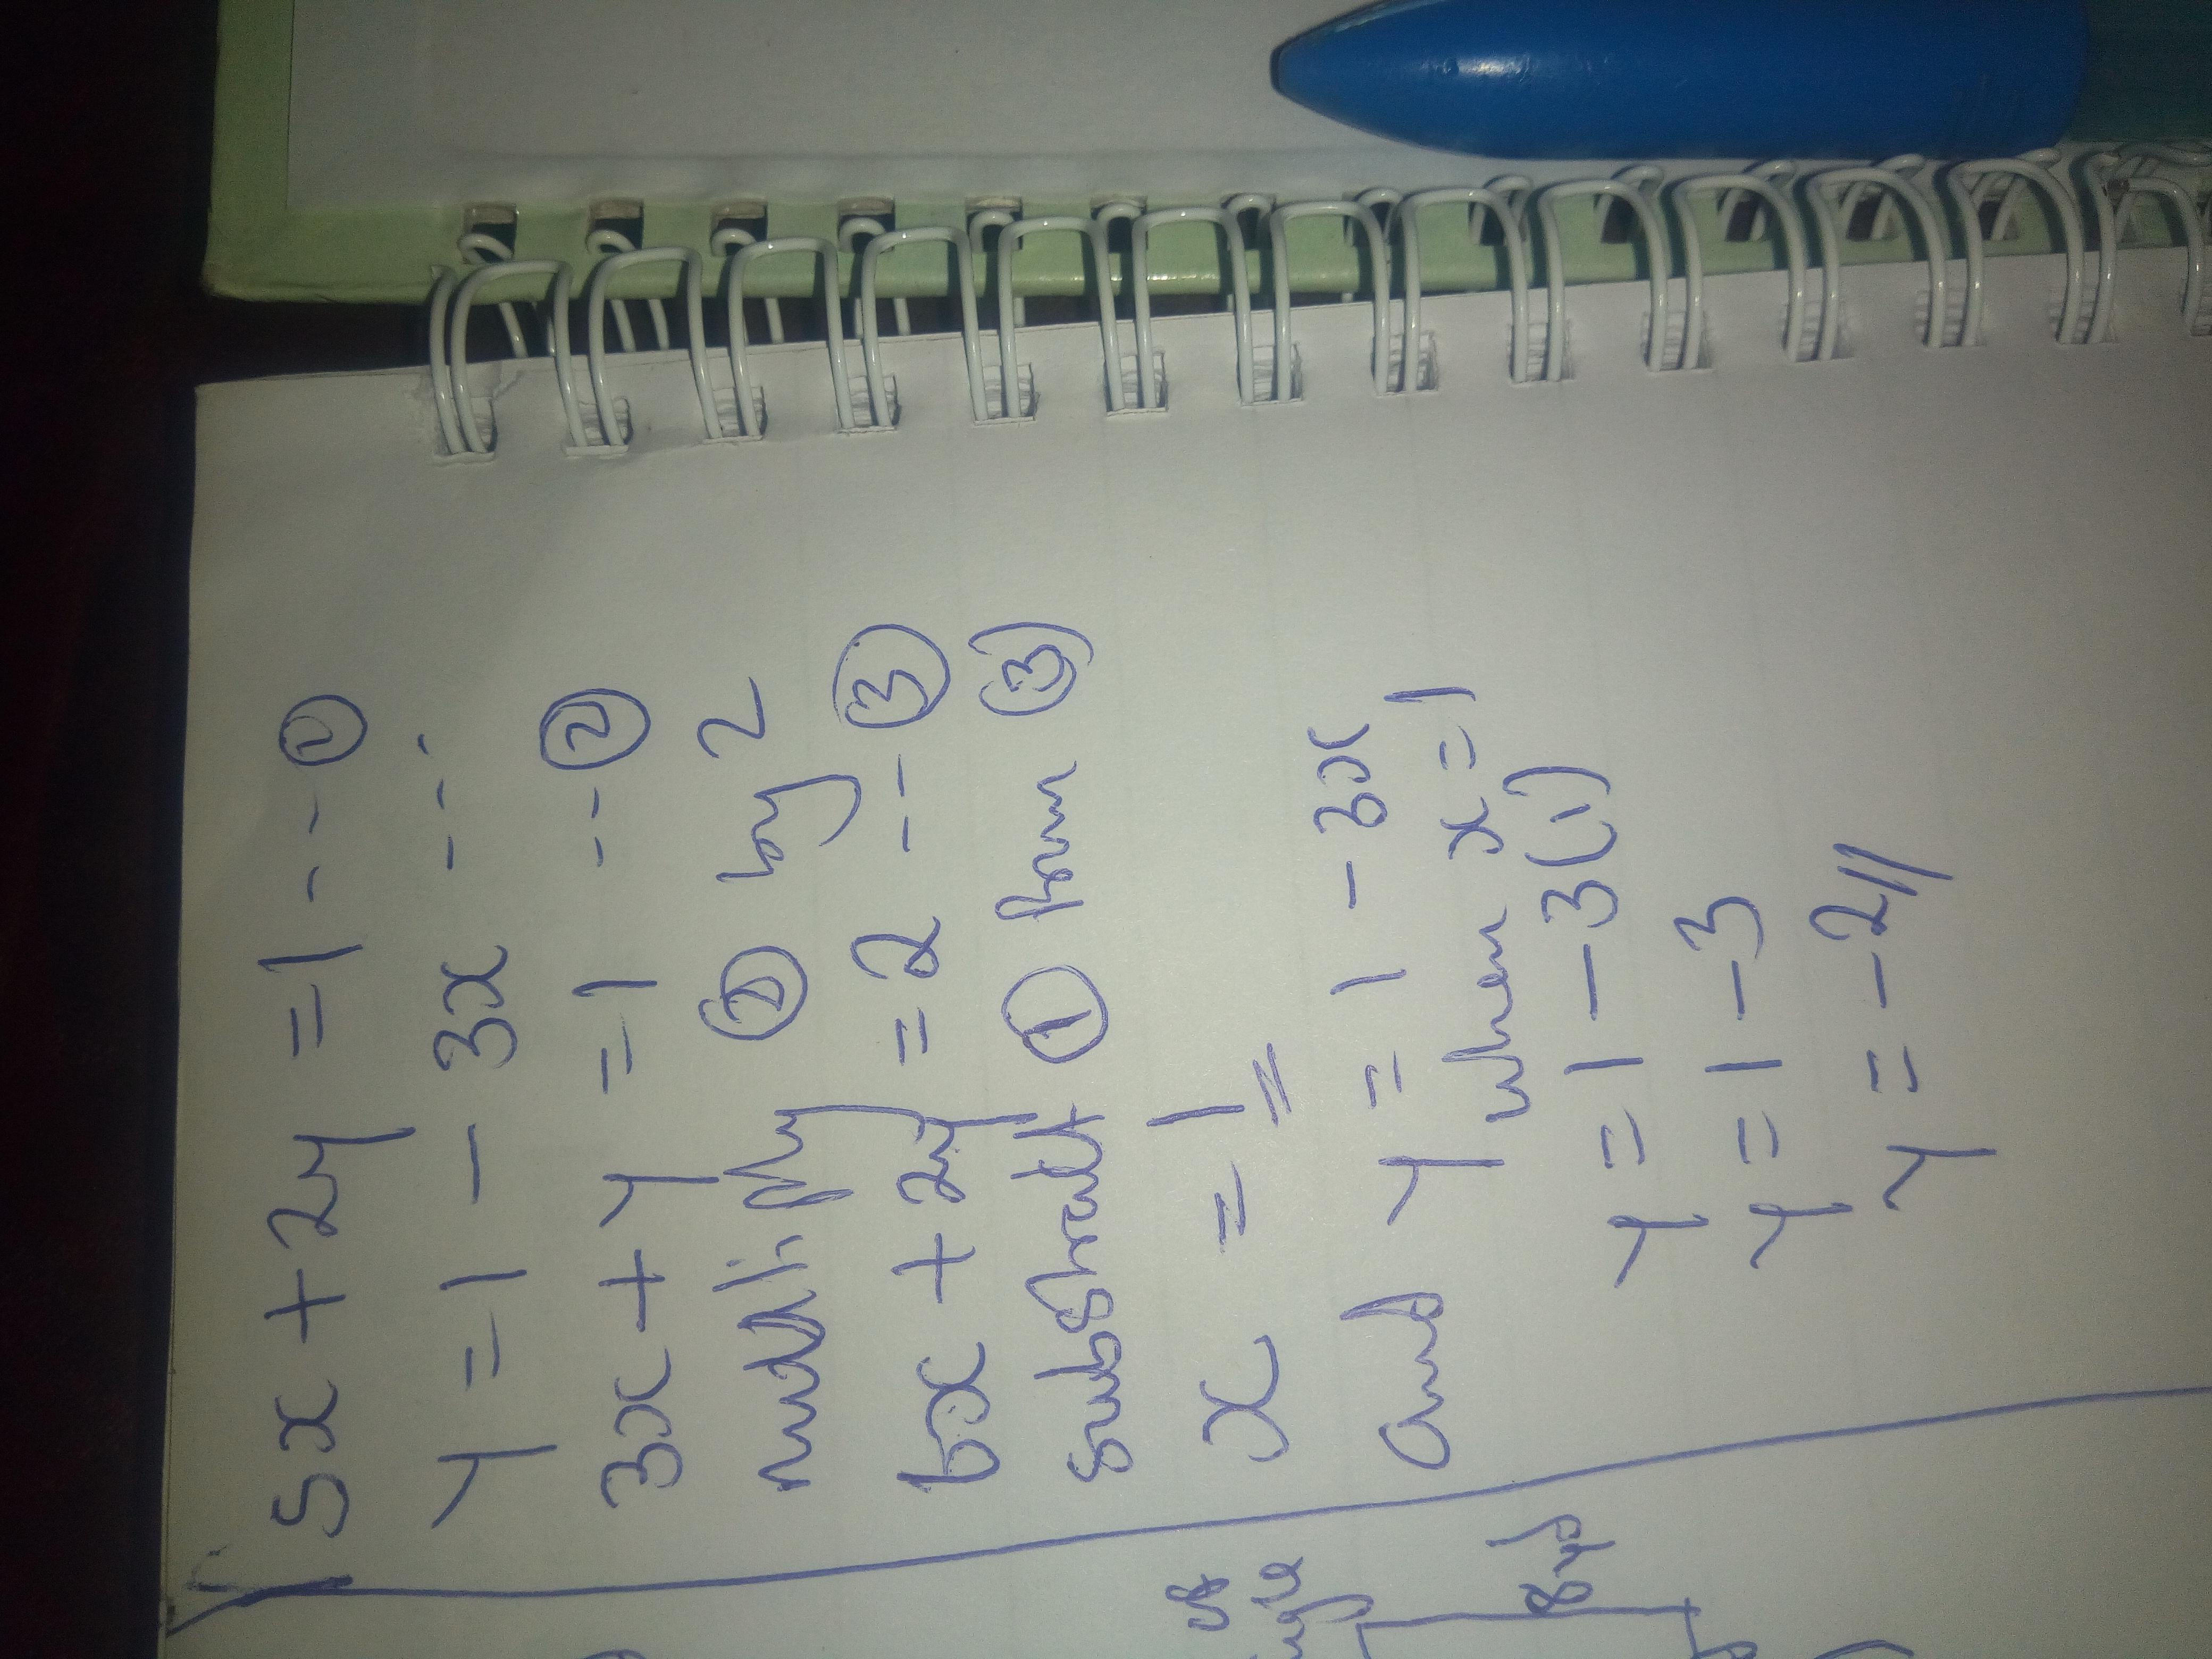 5x + 2y = 1 - - - ①
y = 1 - 3x - - -
3x + y = 1 - - ②
multiply ② by 2
6x + 2y = 2 - - ③
substract ① from ③
x = 1
and y = 1 - 3x
y when x = 1
y = 1 - 3(1)
y = 1 - 3
y = -2//